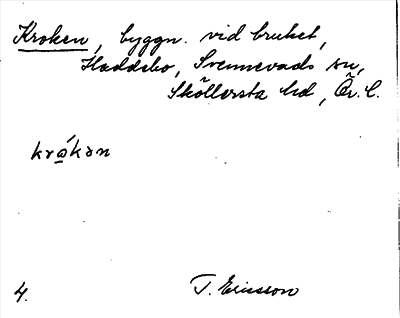 Kroken, byggn. vid bruket,
Haddebo, Svennevads sn,
Sköllersta hd, Ör. l.
krǫ́kən
4. T. Ericsson